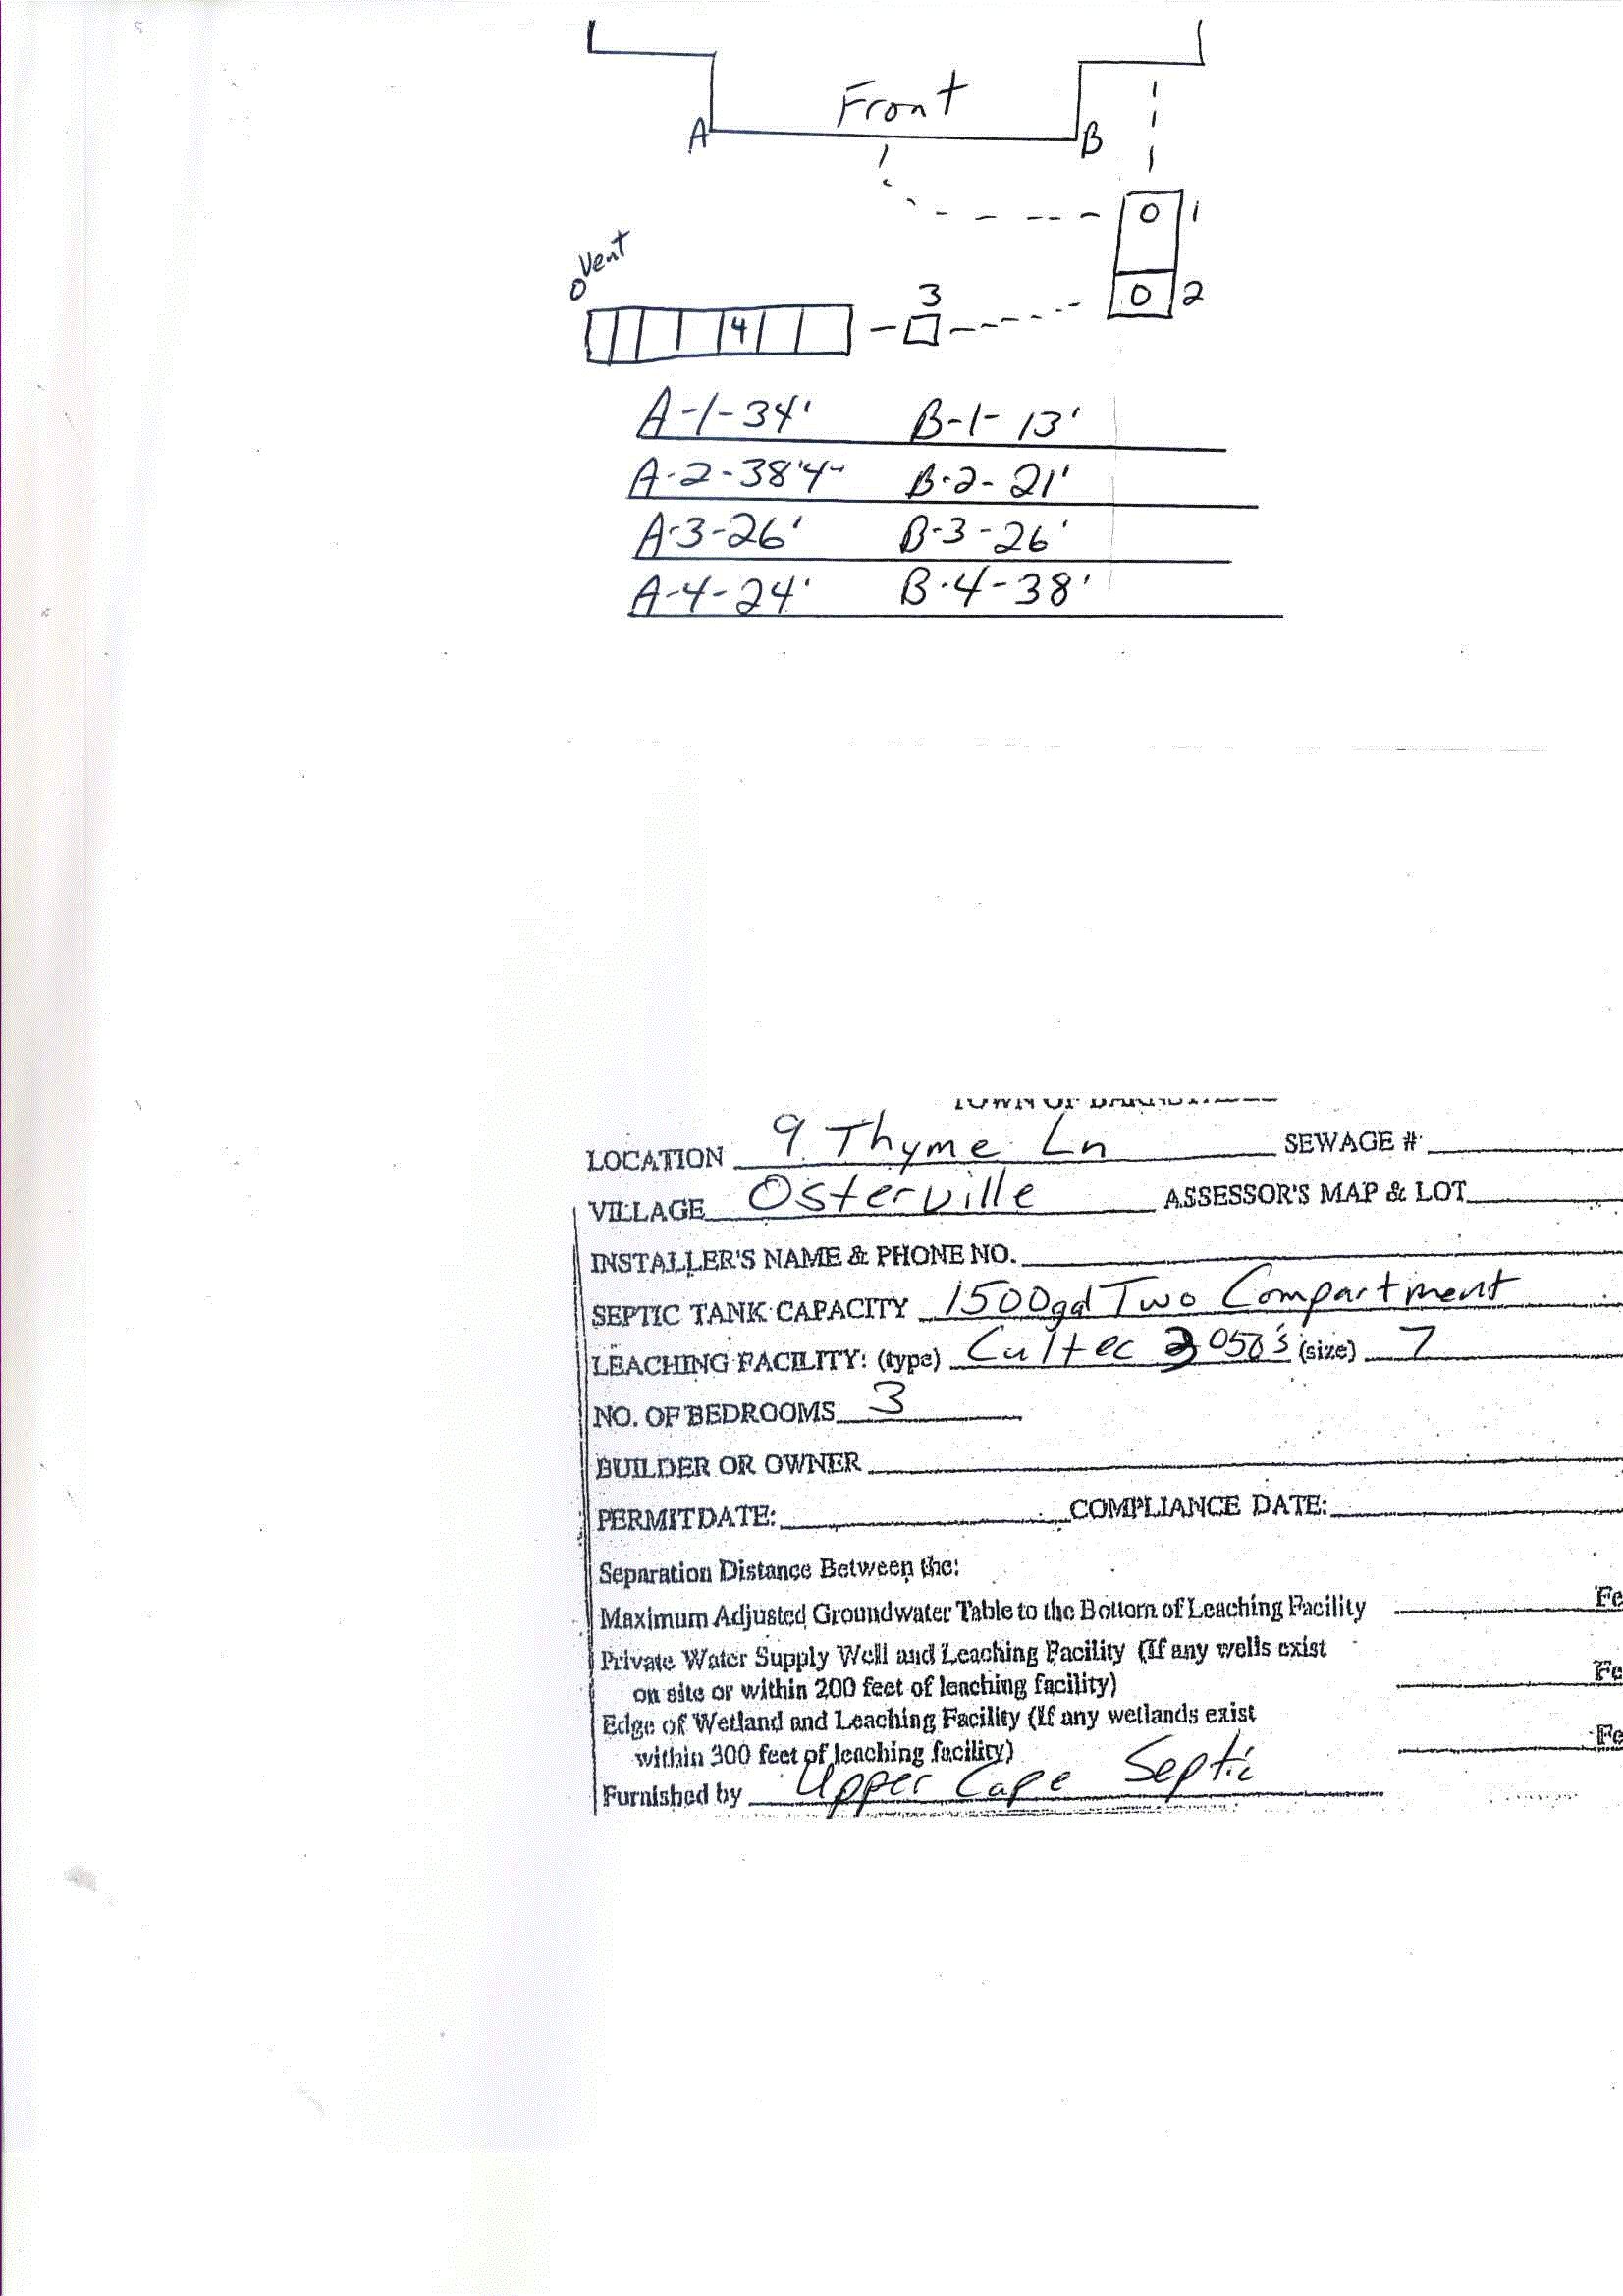 Front
A
B
1
Vent
2
3
4
A-1-34' B-1-13'
A-2-38'4" B-2-21'
A-3-26' B-3-26'
A-4-24' B-4-38'
TOWN OF
LOCATION 9 Thyme Ln SEWAGE #
VILLAGE Osterville ASSESSOR'S MAP & LOT
INSTALLER'S NAME & PHONE NO.
SEPTIC TANK CAPACITY 1500gal Two Compartment
LEACHING FACILITY: (type) Cultec 3050's (size) 7
NO. OF BEDROOMS 3
BUILDER OR OWNER
PERMIT DATE: COMPLIANCE DATE:
Separation Distance Between the:
Maximum Adjusted Groundwater Table to the Bottom of Leaching Facility Fe
Private Water Supply Well and Leaching Facility (If any wells exist
on site or within 200 feet of leaching facility) Fe
Edge of Wetland and Leaching Facility (If any wetlands exist
within 300 feet of leaching facility) Fe
Furnished by Upper Cape Septic